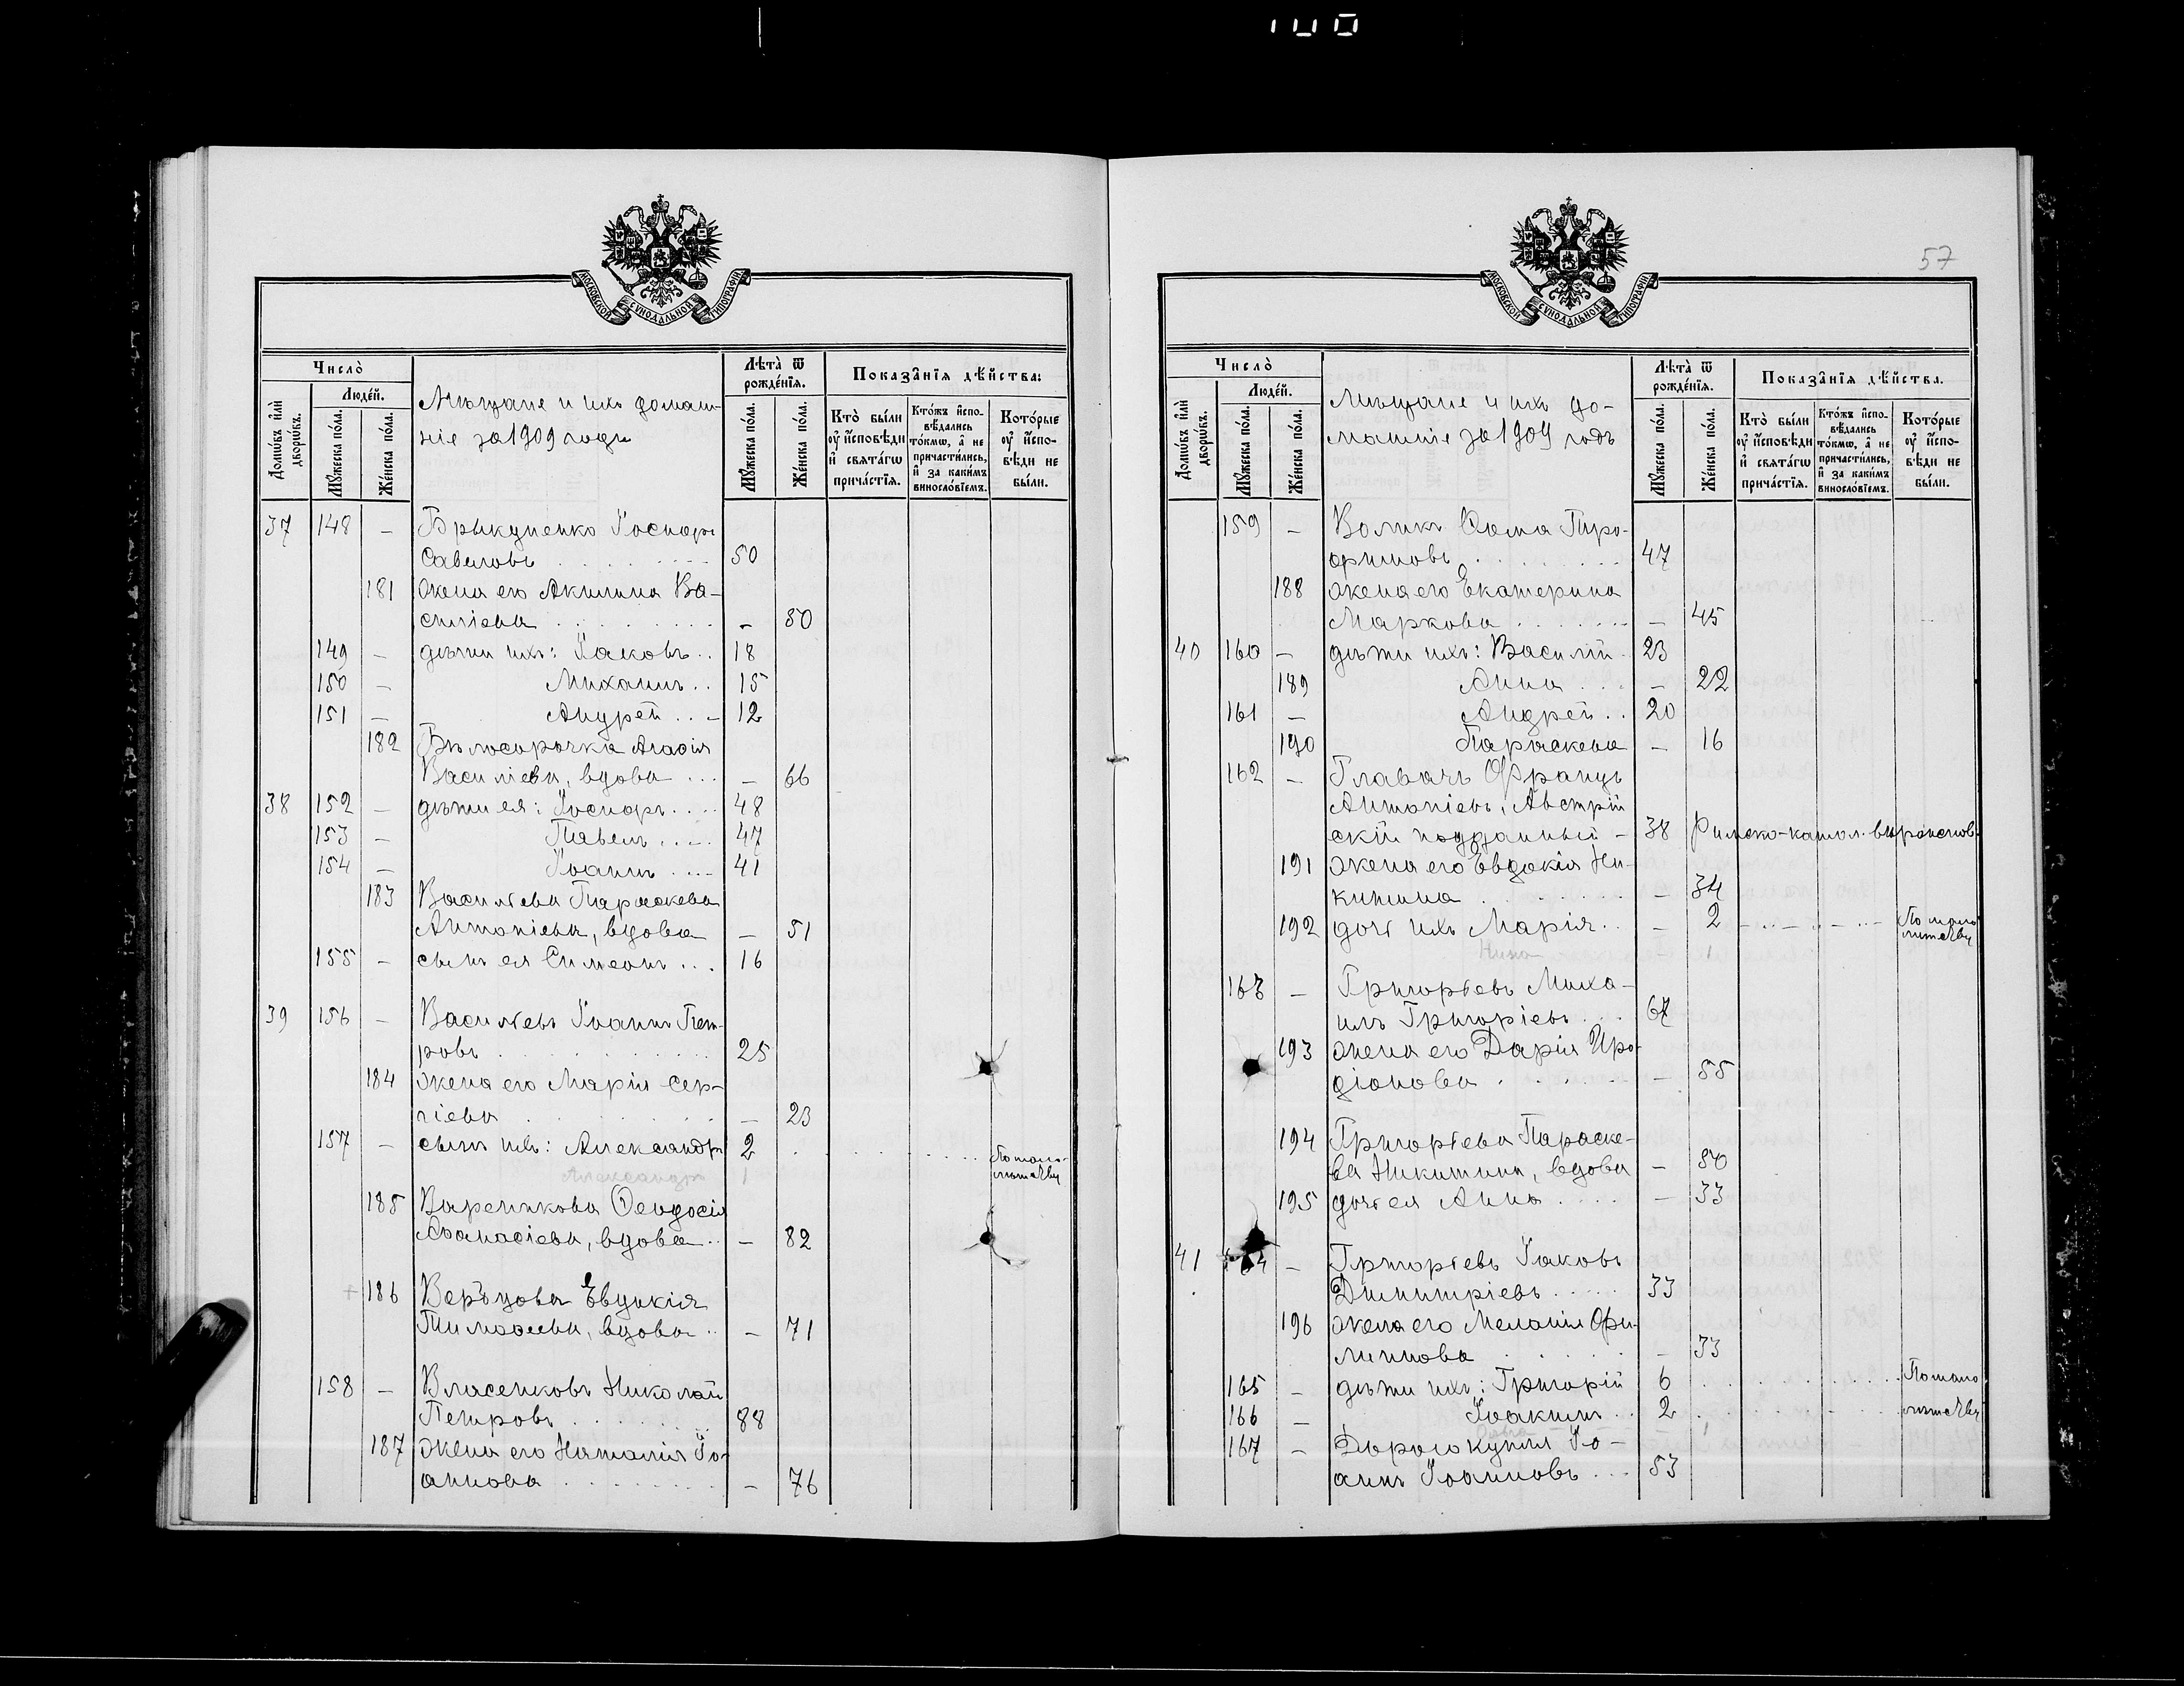 100
МОСКОВСКОЙ СѴНОДАЛЬНОЙ ТИПОГРАФІИ
Число̀
Домѡ́въ и҆лѝ дворѡ́въ.
Люде́й.
Мꙋ́жеска по́ла.
Же́нска по́ла.
Мѣщане и ихъ домаш-
ніе за 1909 годъ
Лѣ́та ѿ рожде́нїѧ.
Мꙋ́жеска по́ла.
Же́нска по́ла.
Показа̑нїѧ дѣ́йства:
Кто̀ бы́ли ᲂу҆ и҆сповѣди и҆ свѧта́гѡ прича́стїѧ.
Кто́жъ и҆спо-вѣ́дались то́кмѡ, а҆ не причасти́лись, и҆ за каки́мъ винослові́емъ.
Кото́рые ᲂу҆ и҆спо-вѣди не бы́ли.
37 148 - Брикуненко Іосифъ
Савиновъ 50
181 жена его Акилина Ва-
силіева - 50
149 - дѣти ихъ: Іаковъ 18
150 - Михаилъ 15
151 - Андрей 12
182 Бѣлосорочка Агафія
Василіева, вдова - 66
38 152 - дѣти ея: Іосифъ 48
153 - Павелъ 47
154 - Іоаннъ 41
183 Васильева Параскева
Антоніева, вдова - 51
155 - сынъ ея Симеонъ 16
39 156 - Васильевъ Іоаннъ Пет-
ровъ 25
184 жена его Марія Сер-
гіева - 23
157 - сынъ ихъ: Александръ 2 По мало-
лѣтству
Александръ 1
185 Вареникова Ѳеодосія
Аѳанасіева, вдова - 82
+ 186 Верѣцова Евдокія
Тимоѳеева, вдова - 71
158 - Власенковъ Николай
Петровъ 88
187 жена его Наталія Іо-
аннова - 76
57
Число̀
Домѡ́въ и҆лѝ дворѡ́въ.
Люде́й.
Мꙋ́жеска по́ла.
Же́нска по́ла.
Мѣщане и ихъ до-
машніе за 1909 годъ
Лѣ́та ѿ рожде́нїѧ.
Мꙋ́жеска по́ла.
Же́нска по́ла.
Показа̑нїѧ дѣ́йства.
Кто̀ бы́ли ᲂу҆ и҆сповѣди и҆ свѧта́гѡ прича́стїѧ.
Кто́жъ и҆спо-вѣ́дались то́кмѡ, а҆ не причасти́лись, и҆ за каки́мъ винослові́емъ.
Кото́рые ᲂу҆ и҆спо-вѣди не бы́ли.
159 - Воликъ Ѳома Тиро-
фимовъ 47
188 жена его Екатерина
Маркова - 45
40 160 - дѣти ихъ: Василій 23
189 Анна - 22
161 - Андрей 20
190 Параскева - 16
162 - Главачъ Францъ
Антоніевъ, Австрій
скій подданный - 38 Римско-катол. вѣроисповѣд.
191 жена его Евдокія Ни-
китина - 34
192 дочь ихъ Марія - 2 По мало
лѣтству
Нина - 1
163 - Григорьевъ Миха-
илъ Григоріевъ 67
193 жена его Дарія Иро-
діонова - 55
194 Григорьева Параске-
ва Никитина, вдова - 50
195 дочь ея Анна - 33
41 164 - Григорьевъ Іаковъ
Димитріевъ 33
196 жена его Меланія Фи-
липпова - 33
165 - дѣти ихъ: Григорій 6 По мало
166 - Іоакимъ 2 лѣтству
167 - Дорогокупля Іо-
аннъ Іоанновъ 53